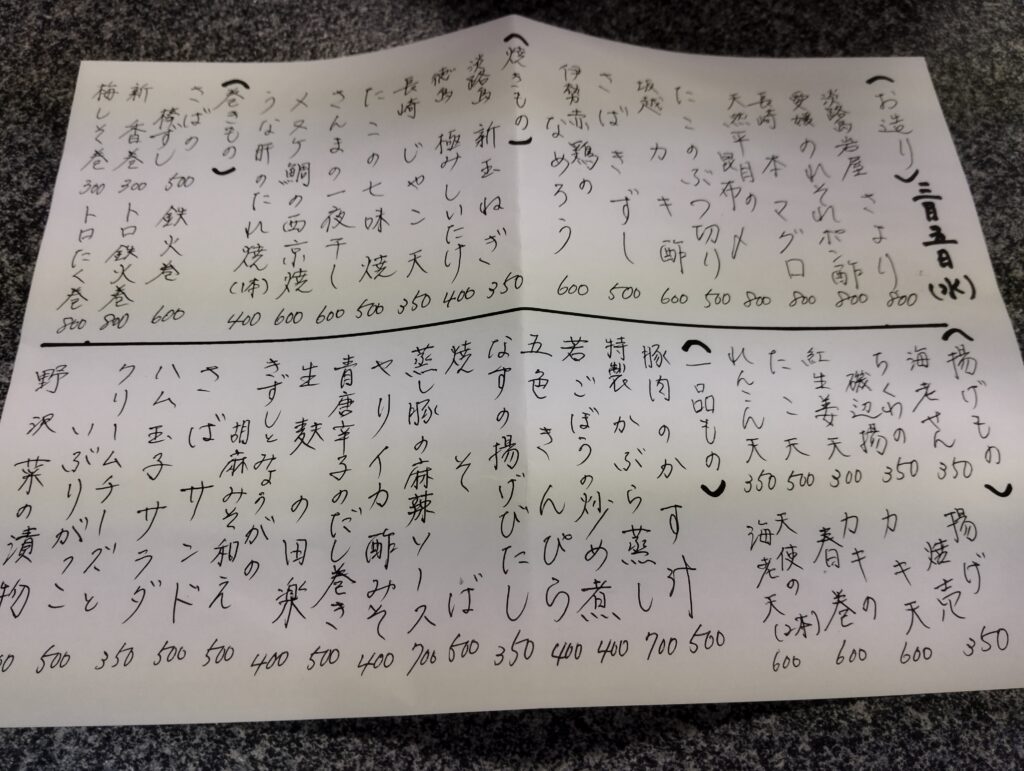 三月五日(水)
(お造り)
淡路島岩屋 さより 800
愛媛 のれそれポン酢 800
長崎 本マグロ 800
天然平目の昆布〆 800
たこのぶつ切り 500
坂越 カキ酢 600
さばきずし 500
伊勢赤鶏の
なめろう 600
(焼きもの)
淡路島 新玉ねぎ 350
徳島 極みしいたけ 400
長崎 じゃこ天 350
たこの七味焼 500
さんまの一夜干し 600
メヌケ鯛の西京焼 600
うな肝のたれ焼(1本) 400
(巻きもの)
さばの
棒すし 500 鉄火巻 600
新香巻 300 トロ鉄火巻 800
梅しそ巻 300 トロにく巻 800
(揚げもの)
海老せん 350
ちくわの
磯辺揚 350
紅生姜天 300
たこ天 500
れんこん天 350
揚げ焼売 350
カキ天 600
カキの
春巻 600
天使の
海老天(2本) 600
(一品もの)
豚肉のかす汁 500
特製かぶら蒸し 700
若ごぼうの炒め煮 400
五色きんぴら 400
なすの揚げびたし 350
焼そば 500
蒸し豚の麻辣ソース 700
ヤリイカ酢みそ 400
青唐辛子のだし巻き 500
生麩の田楽 400
きずしとみょうがの
胡麻みそ和え 500
さばサンド 500
ハム玉子サラダ 350
クリームチーズと
いぶりがっこ 500
野沢菜の漬物